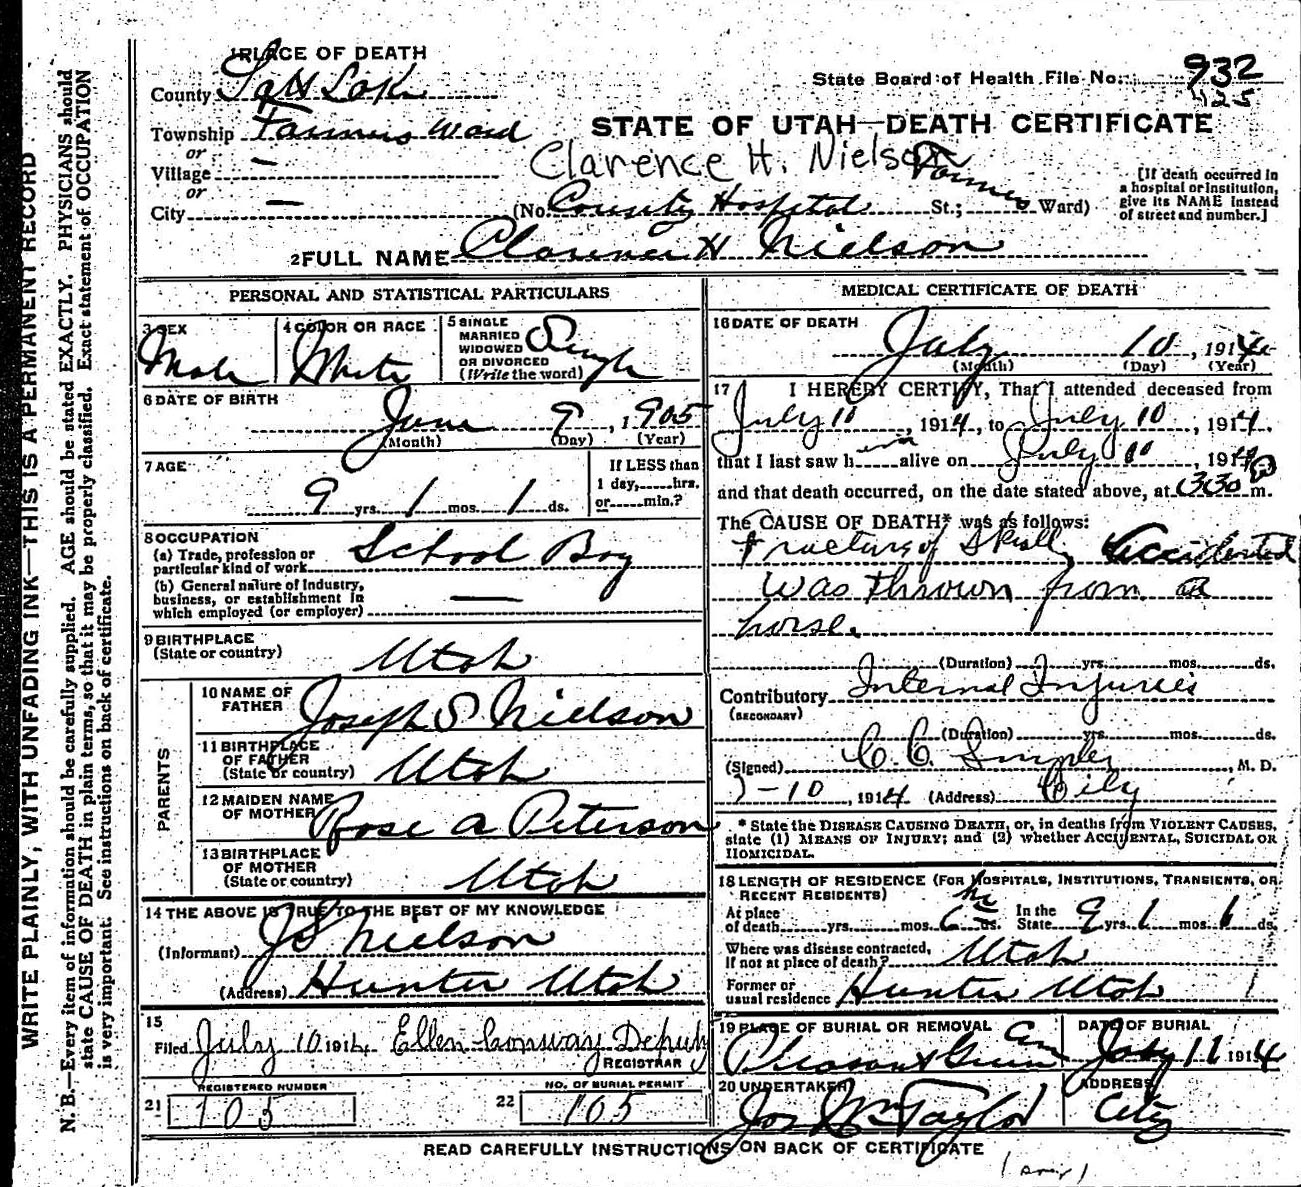 WRITE PLAINLY, WITH UNFADING INK—THIS IS A PERMANENT RECORD
N. B.—Every item of information should be carefully supplied. AGE should be stated EXACTLY. PHYSICIANS should
state CAUSE OF DEATH in plain terms, so that it may be properly classified. Exact statement of OCCUPATION
is very important. See instructions on back of certificate.
1 PLACE OF DEATH
County Salt Lake
Township Farmers Ward
or
Village —
or
City —
State Board of Health File No. 932
425
STATE OF UTAH—DEATH CERTIFICATE
Clarence H. Nielson
(No. County Hospital St.; Farmers Ward)
[If death occurred in
a hospital or institution,
give its NAME instead
of street and number.]
2 FULL NAME Clarence H Nielson
PERSONAL AND STATISTICAL PARTICULARS
3 SEX Male
4 COLOR OR RACE White
5 SINGLE
MARRIED
WIDOWED
OR DIVORCED
(Write the word) Single
6 DATE OF BIRTH
June 9, 1905
(Month) (Day) (Year)
7 AGE
9 yrs. 1 mos. 1 ds.
If LESS than
1 day, hrs.
or min.?
8 OCCUPATION
(a) Trade, profession or
particular kind of work School Boy
(b) General nature of industry,
business, or establishment in
which employed (or employer) —
9 BIRTHPLACE
(State or country) Utah
PARENTS
10 NAME OF
FATHER Joseph S Nielson
11 BIRTHPLACE
OF FATHER
(State or country) Utah
12 MAIDEN NAME
OF MOTHER Rose A Peterson
13 BIRTHPLACE
OF MOTHER
(State or country) Utah
14 THE ABOVE IS TRUE TO THE BEST OF MY KNOWLEDGE
(Informant) J S Nielson
(Address) Hunter Utah
15
Filed July 10 1914 Ellen Conway Deputy
REGISTRAR
REGISTERED NUMBER
21 105
NO. OF BURIAL PERMIT
22 105
MEDICAL CERTIFICATE OF DEATH
16 DATE OF DEATH
July 10, 1914
(Month) (Day) (Year)
17 I HEREBY CERTIFY, That I attended deceased from
July 10, 1914, to July 10, 1914,
that I last saw him alive on July 10, 1914
and that death occurred, on the date stated above, at 330 P m.
The CAUSE OF DEATH* was as follows:
Fracture of Skull, Accidental
was thrown from a
horse.
(Duration) yrs. mos. ds.
Contributory Internal Injuries
(SECONDARY)
(Duration) yrs. mos. ds.
(Signed) C. C. M. D.
7-10, 1914 (Address) City
* State the DISEASE CAUSING DEATH, or, in deaths from VIOLENT CAUSES,
state (1) MEANS OF INJURY; and (2) whether ACCIDENTAL, SUICIDAL OR
HOMICIDAL.
18 LENGTH OF RESIDENCE (FOR HOSPITALS, INSTITUTIONS, TRANSIENTS, OR
RECENT RESIDENTS)
At place
of death yrs. mos. 6 hr ds. In the
State 9 yrs. 1 mos. 1 ds.
Where was disease contracted,
If not at place of death? Utah
Former or
usual residence Hunter Utah
19 PLACE OF BURIAL OR REMOVAL
Pleasant Green Cem
DATE OF BURIAL
July 11 1914
20 UNDERTAKER
Jos Wm Taylor
ADDRESS
City
READ CAREFULLY INSTRUCTIONS ON BACK OF CERTIFICATE